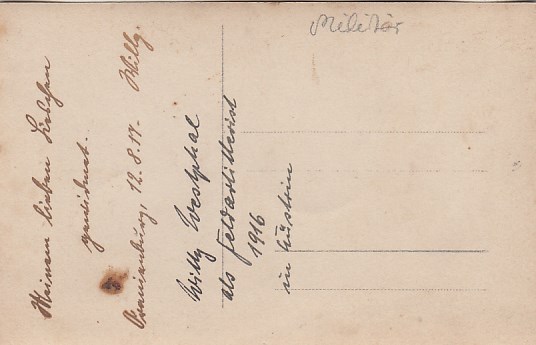 Militär
Meinem lieben Lieschen
gewidmet.
Oranienburg, 12.8.17. Willy.
Willy Westphal
als Feldartillerist
1916
in Cüstrin